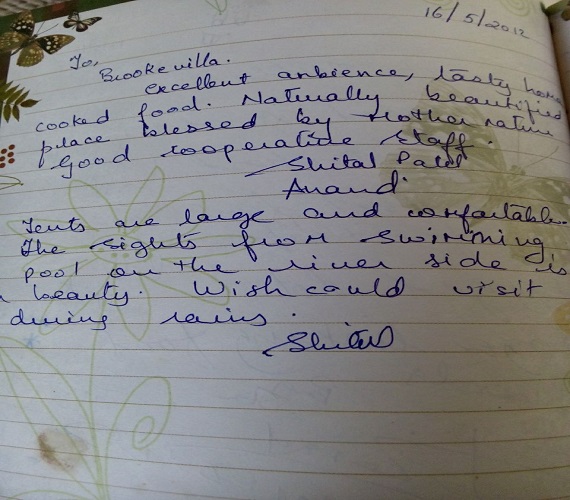 16/5/2012
To,
Brookevilla.
excellent anbience, tasty home
cooked food. Naturally beautified
place blessed by Mother nature
Good cooperative staff.
Shital Patel
Anand
Tents are large and comfortable.
The sights from swimming
pool on the river side is
beauty. Wish could visit
during rains.
Shital